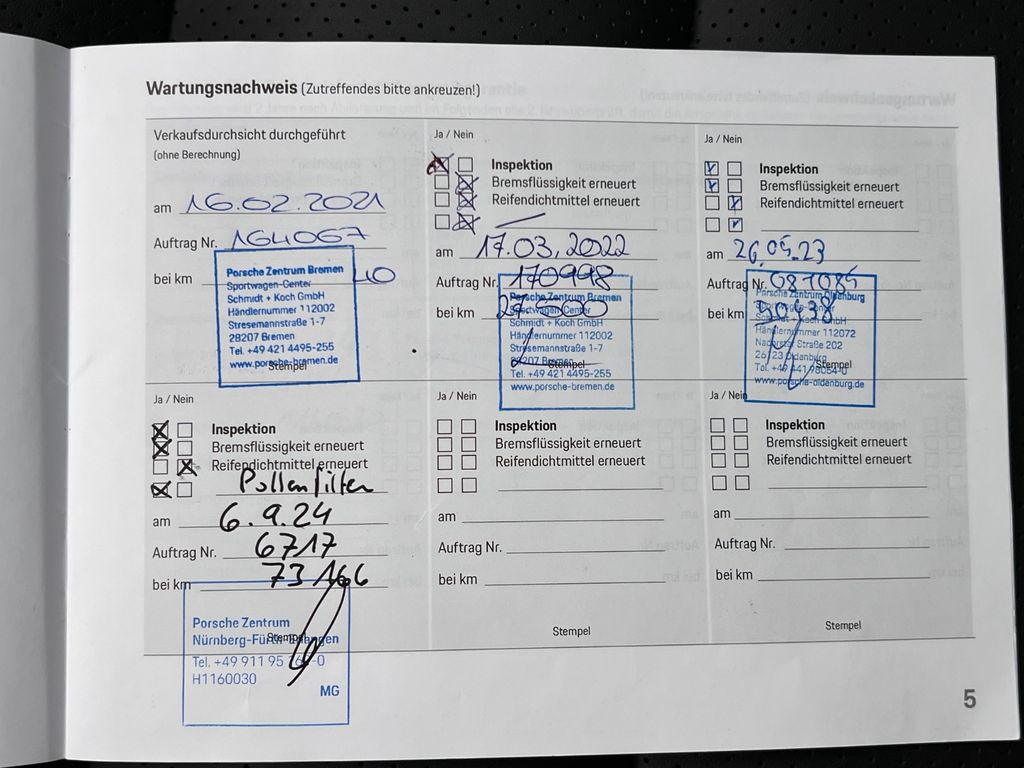 Wartungsnachweis (Zutreffendes bitte ankreuzen!)
Verkaufsdurchsicht durchgeführt
(ohne Berechnung)
am 16.02.2021
Auftrag Nr. 164067
bei km 40
Porsche Zentrum Bremen
Sportwagen-Center
Schmidt + Koch GmbH
Händlernummer 112002
Stresemannstraße 1-7
28207 Bremen
Tel. +49 421 4495-255
www.porsche-bremen.de
Stempel
Ja / Nein
Inspektion
Bremsflüssigkeit erneuert
Reifendichtmittel erneuert
am 17.03.2022
Auftrag Nr. 170998
bei km
Porsche Zentrum Bremen
Sportwagen-Center
Schmidt + Koch GmbH
Händlernummer 112002
Stresemannstraße 1-7
28207 Bremen
Tel. +49 421 4495-255
www.porsche-bremen.de
Stempel
Ja / Nein
Inspektion
Bremsflüssigkeit erneuert
Reifendichtmittel erneuert
am 26.05.23
Auftrag Nr. 081085
bei km
Porsche Zentrum Oldenburg
Schmidt + Koch GmbH
Händlernummer 112072
Straße 202
Oldenburg
www.porsche-oldenburg.de
Stempel
Ja / Nein
Inspektion
Bremsflüssigkeit erneuert
Reifendichtmittel erneuert
Pollenfilter
am 6.9.24
Auftrag Nr. 6717
bei km 73166
Porsche Zentrum
Nürnberg-Fürth-Erlangen
Tel. +49 911 95
H1160030
MG
Stempel
Ja / Nein
Inspektion
Bremsflüssigkeit erneuert
Reifendichtmittel erneuert
am
Auftrag Nr.
bei km
Stempel
Ja / Nein
Inspektion
Bremsflüssigkeit erneuert
Reifendichtmittel erneuert
am
Auftrag Nr.
bei km
Stempel
5